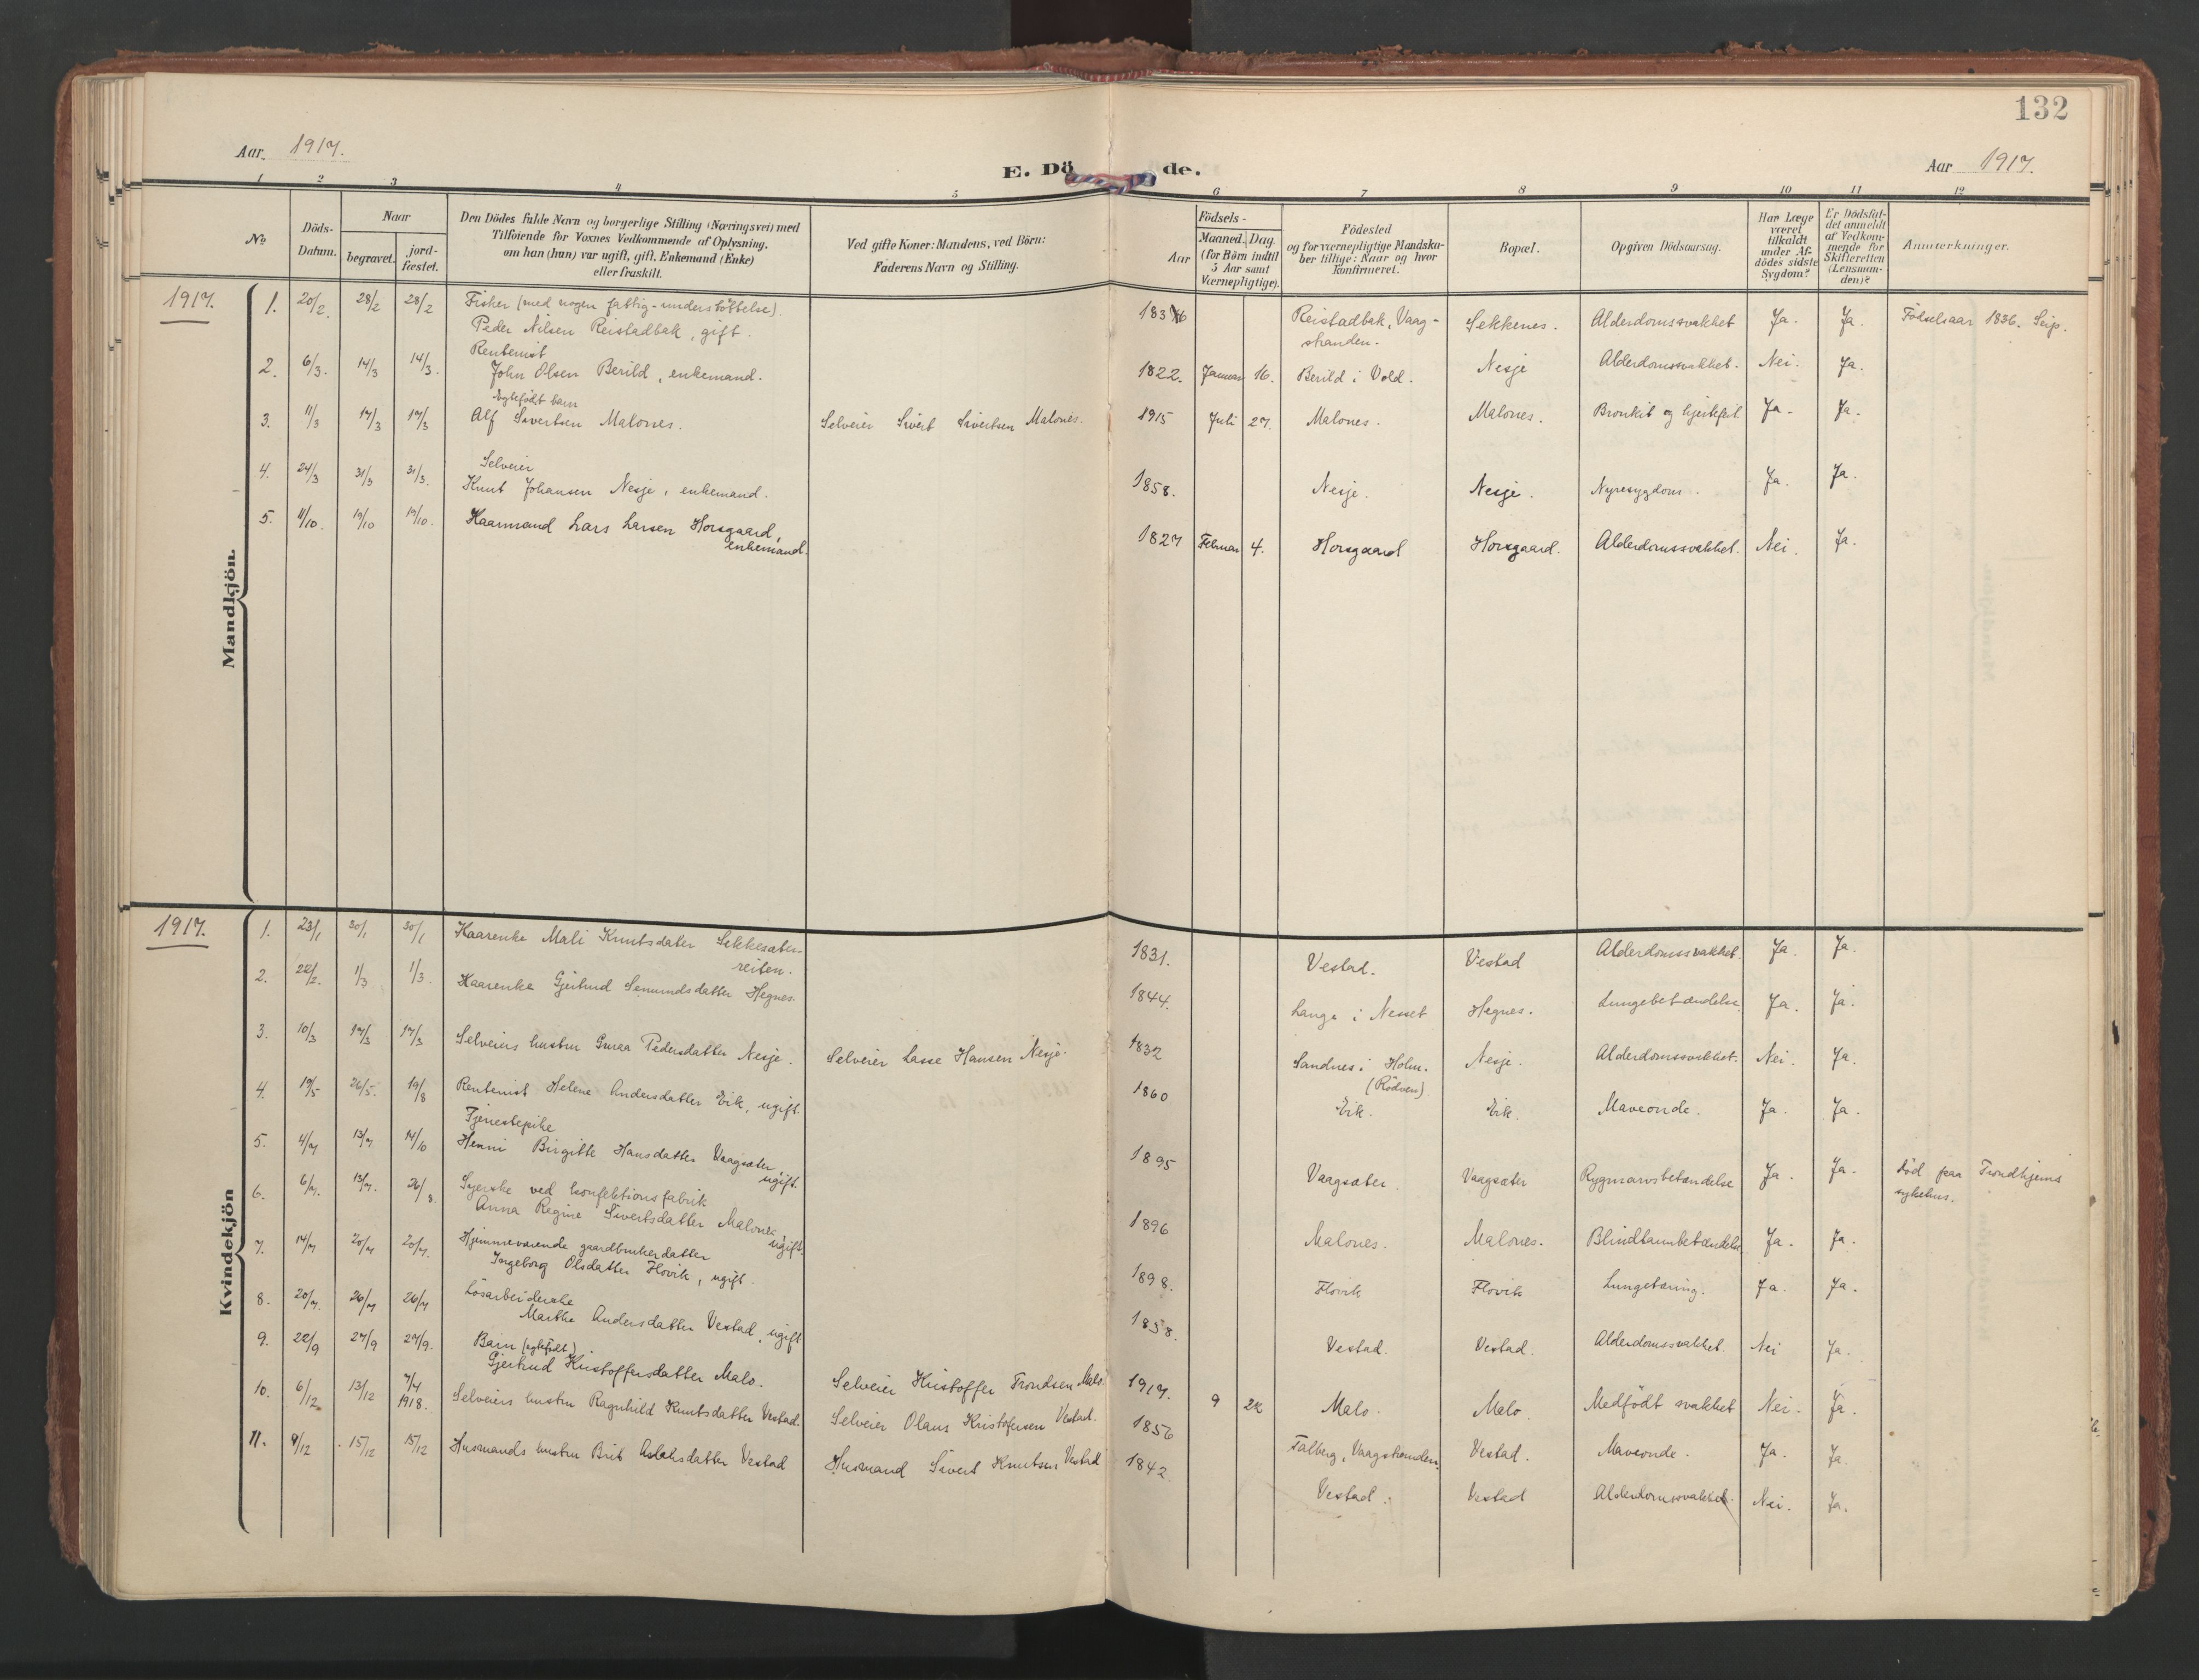 132
Aar 1917.
E. Dö de.
Aar 1917.
1 2 3 4 5 6 7 8 9 10 11 12
No
Döds-Datum.
Naar
begravet.
jord-fæstet.
Den Dödes fulde Navn og borgerlige Stilling (Næringsvei) med
Tilföiende for Voxnes Vedkommende af Oplysning,
om han (hun) var ugift, gift, Enkemand (Enke)
eller fraskilt.
Ved gifte Koner: Mandens, ved Börn:
Faderens Navn og Stilling.
Födsels-
Aar
Maaned. Dag.
(for Börn indtil
5 Aar samt
Værnepligtige).
Födested
og for værnepligtige Mandska-
ber tillige: Naar og hvor
konfirmeret.
Bopæl.
Opgiven Dödsaarsag.
Har Læge
været
tilkaldt
under Af-
dödes sidste
Sygdom?
Er Dödsfal-
det anmeldt
af Vedkom-
mende for
Skifteretten
(Lensman-
den)?
Anmærkninger.
Mandkjön.
1917.
1. 20/2. 28/2 28/2 Fisker (med nogen fattig-understöttelse).
Peder Nilsen Reistadbak, gift. 1836 Reistadbak, Vaag-
stranden. Sekkenes. Alderdomssvakhet Ja. Ja. Födselsaar 1836. Seip.
2. 6/3. 14/3 14/3. Rentenist
John Olsen Berild, enkemand. 1822. Januar 16. Berild i Vold. Nesje Alderdomssvakhet. Nei. Ja.
3. 11/3 17/3 17/3 Egtefödt barn
Alf Sivertsen Malones. Selveier Sivert Sivertsen Malones. 1915 Juli 27. Malones. Malones. Bronkit og hjertefeil Ja. Ja.
4. 24/3 31/3 31/3. Selveier
Knut Johansen Nesje, enkemand. 1858. Nesje. Nesje. Nyresygdom. Ja. Ja.
5. 11/10. 19/10 19/10. Kaarmand Lars Larsen Horsgaard,
enkemand. 1827 Februar 4. Horsgaard Horsgaard. Alderdomssvakhet. Nei. Ja.
Kvindekjön
1917.
1. 23/1 30/1 30/1 Kaarenke Mali Knutsdatter Sekkesæter-
reiten. 1831. Vestad. Vestad Alderdomssvakhet. Ja. Ja.
2. 22/2. 1/3 1/3. Kaarenke Gjertrud Semundsdatter Hegnes. 1844. Lange i Nesset Hegnes. Lungebetændelse Ja. Ja.
3. 10/3 17/3 17/3 Selveiers hustru Guraa Pedersdatter Nesje. Selveier Lasse Hansen Nesje. 1832 Sandnes i Holm.
(Rödven) Nesje. Alderdomssvakhet. Nei. Ja.
4. 19/5 26/5. 19/8 Rentenist Helene Andersdatter Eik, ugift. 1860 Eik. Eik. Maveonde. Ja. Ja.
5. 4/7 13/7 14/10 Tjenestepike
Henni Birgitte Hansdatter Vaagsæter,
ugift. 1895 Vaagsæter Vaagsæter Rygmarvsbetændelse Ja. Ja. Död paa Trondhjems
sykehus.
6. 6/7. 13/7. 26/8. Syerske ved konfektionsfabrik
Anna Regine Sivertsdatter Malones,
ugift. 1896 Malones. Malones. Blindtarmbetændelse Ja. Ja.
7. 14/7 20/7 20/7. Hjemmeværende gaardbrukerdatter
Ingeborg Olsdatter Flovik, ugift. 1898. Flovik Flovik Lungetæring. Ja. Ja.
8. 20/7. 26/7 26/7 Lösarbeiderske
Marthe Andersdatter Vestad, ugift 1838. Vestad. Vestad. Alderdomssvakhet. Nei Ja.
9. 22/9 27/9 27/9. Barn (egtefödt)
Gjertrud Kristoffersdatter Malo. Selveier Kristoffer Trondsen Malo. 1917. 9 22 Malo. Malo. Medfödt svakhet Nei. Ja.
10. 6/12. 13/12 7/4
1918. Selveiers hustru Ragnhild Knutsdatter Vestad. Selveier Olaus Kristofersen Vestad. 1856 Talberg, Vaagstranden. Vestad. Maveonde. Ja. Ja.
11. 9/12 15/12 15/12 Husmands hustru Brit Aslaksdatter Vestad Husmand Sivert Knutsen Vestad 1842. Vestad. Vestad Alderdomssvakhet. Nei. Ja.